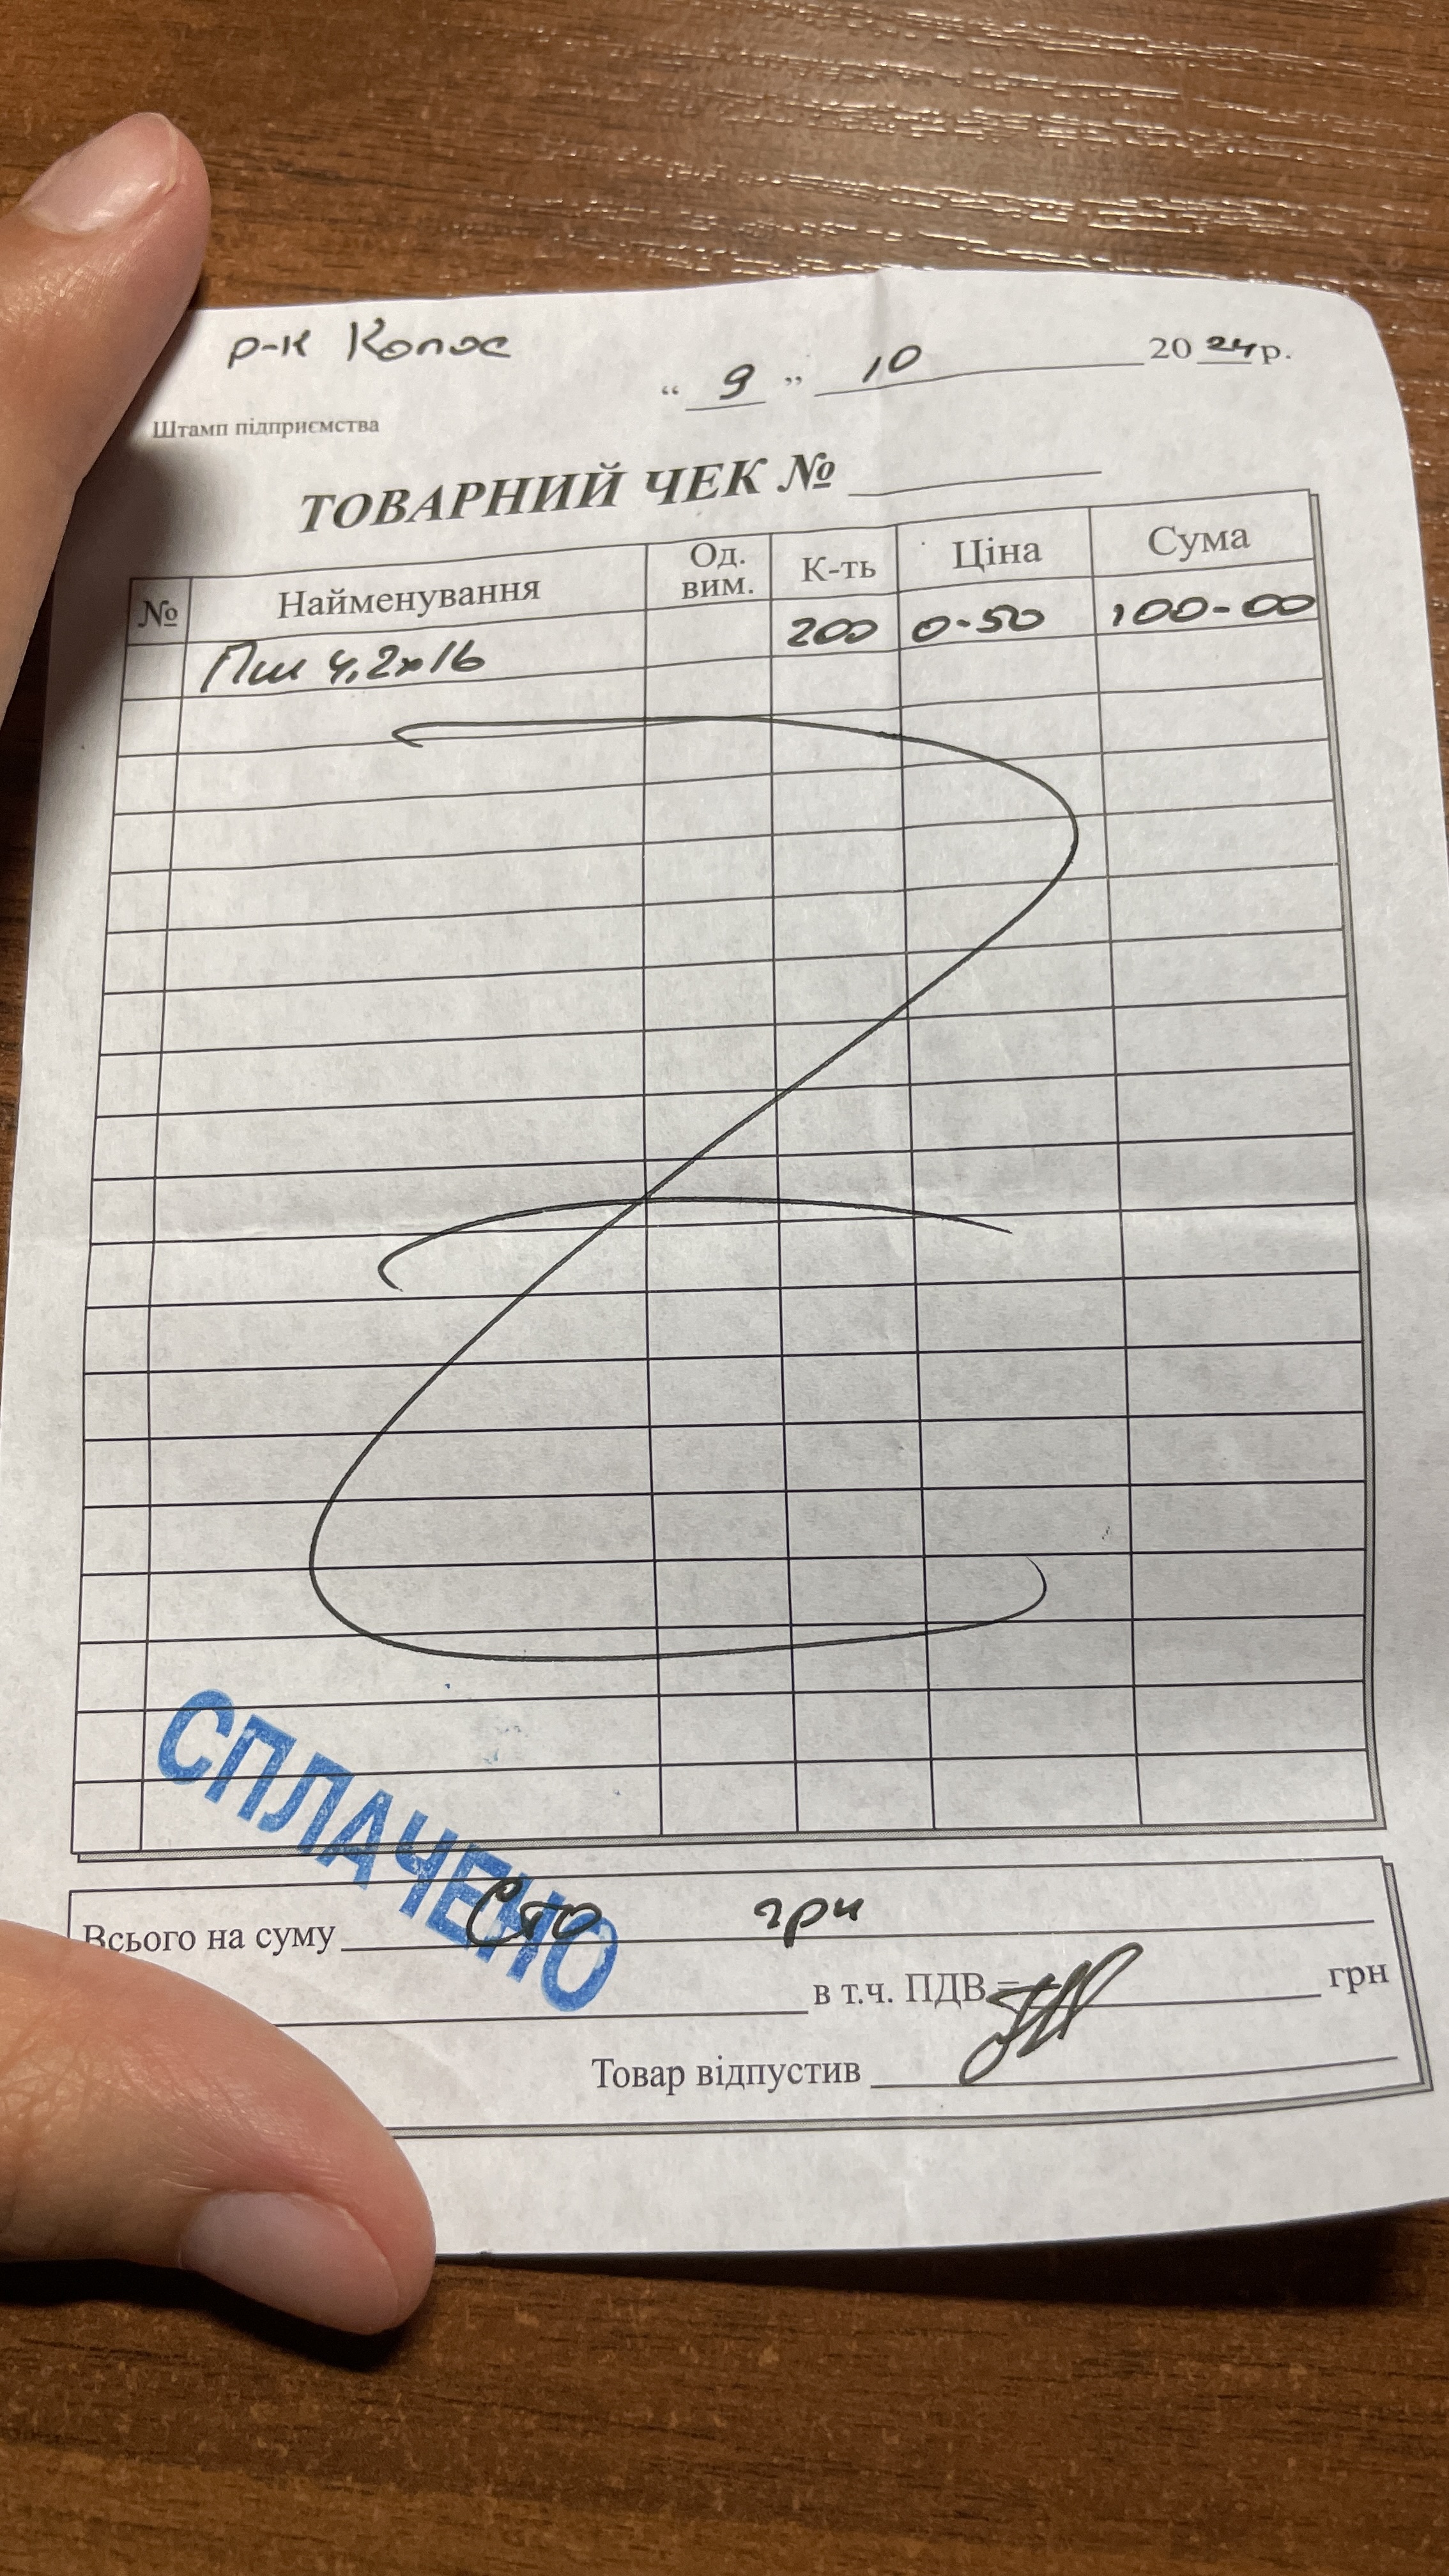 р-к Колос
“ 9 ” 10 2024р.
Штамп підприємства
ТОВАРНИЙ ЧЕК №
№ Найменування Од. вим. К-ть Ціна Сума
Пш 4,2х16 200 0-50 100-00
СПЛАЧЕНО
Всього на суму Сто грн
в т.ч. ПДВ = грн
Товар відпустив